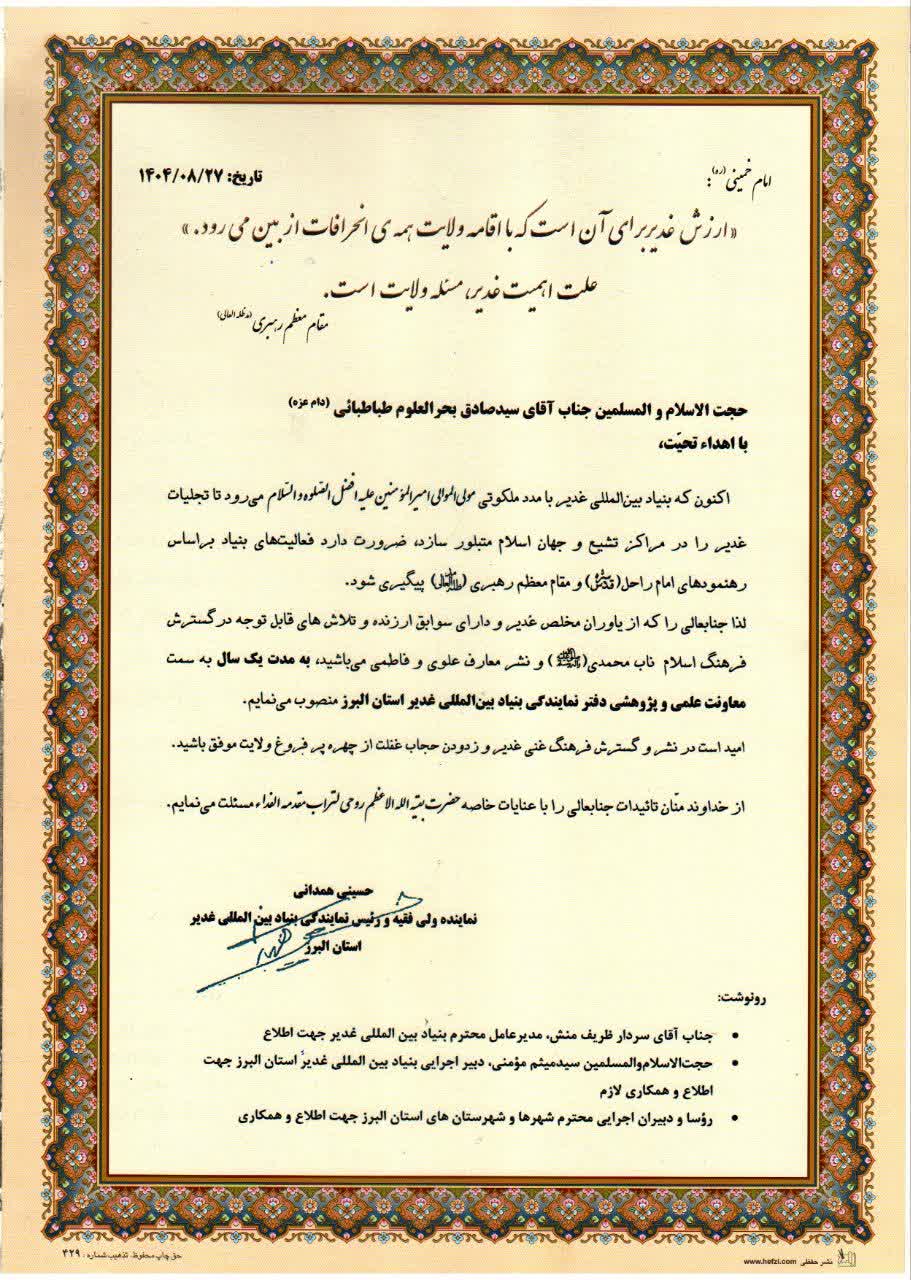 امام خمینی (ره):
تاریخ: ۱۴۰۴/۰۸/۲۷
«ارزش غدیر برای آن است که با اقامه ولایت همه ی انحرافات از بین می رود.»
علت اهمیت غدیر، مسئله ولایت است.
مقام معظم رهبری (مدظله العالی)
حجت الاسلام و المسلمین جناب آقای سیدصادق بحرالعلوم طباطبائی (دام عزه)
با اهداء تحیّت،
اکنون که بنیاد بین‌المللی غدیر با مدد ملکوتی مولی الموالی امیرالمؤمنین علیه افضل الصلوه و السّلام می‌رود تا تجلیات
غدیر را در مراکز تشیع و جهان اسلام متبلور سازد، ضرورت دارد فعالیت‌های بنیاد براساس
رهنمودهای امام راحل() و مقام معظم رهبری () پیگیری شود.
لذا جنابعالی را که از یاوران مخلص غدیر و دارای سوابق ارزنده و تلاش های قابل توجه در گسترش
فرهنگ اسلام ناب محمدی(ﷺ) و نشر معارف علوی و فاطمی می‌باشید، به مدت یک سال به سمت
معاونت علمی و پژوهشی دفتر نمایندگی بنیاد بین‌المللی غدیر استان البرز منصوب می‌نمایم.
امید است در نشر و گسترش فرهنگ غنی غدیر و زدودن حجاب غفلت از چهره پر فروغ ولایت موفق باشید.
از خداوند منّان تائیدات جنابعالی را با عنایات خاصه حضرت بقیة الله الاعظم روحی لتراب مقدمه الفداء مسئلت می‌نمایم.
حسینی همدانی
نماینده ولی فقیه و رئیس نمایندگی بنیاد بین المللی غدیر
استان البرز
رونوشت:
• جناب آقای سردار ظریف منش، مدیرعامل محترم بنیاد بین المللی غدیر جهت اطلاع
• حجت‌الاسلام‌والمسلمین سیدمیثم مؤمنی، دبیر اجرایی بنیاد بین المللی غدیر استان البرز جهت
اطلاع و همکاری لازم
• رؤسا و دبیران اجرایی محترم شهرها و شهرستان های استان البرز جهت اطلاع و همکاری
نشر حفظی www.hefzi.com
حق چاپ محفوظ. تذهیب شماره: ۴۲۹